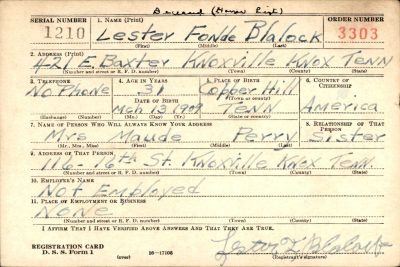 Deceased (Honor List)
SERIAL NUMBER 1. NAME (Print) ORDER NUMBER
1210 Lester Fonde Blalock 3303
(First) (Middle) (Last)
2. ADDRESS (Print)
421 E. Baxter Knoxville Knox Tenn
(Number and street or R. F. D. number) (Town) (County) (State)
3. TELEPHONE 4. AGE IN YEARS 5. PLACE OF BIRTH 6. COUNTRY OF CITIZENSHIP
No Phone 31 Copper Hill
DATE OF BIRTH (Town or county)
Mch 13 1909 Tenn America
(Exchange) (No.) (Mo.) (Day) (Yr.) (State or country)
7. NAME OF PERSON WHO WILL ALWAYS KNOW YOUR ADDRESS 8. RELATIONSHIP OF THAT PERSON
Mrs Maude Perry Sister
(Mr., Mrs., Miss) (First) (Middle) (Last)
9. ADDRESS OF THAT PERSON
116 St. Knoxville Knox Tenn.
(Number and street or R. F. D. number) (Town) (County) (State)
10. EMPLOYER'S NAME
Not Employed
11. PLACE OF EMPLOYMENT OR BUSINESS
None
(Number and street or R. F. D. number) (Town) (County) (State)
I AFFIRM THAT I HAVE VERIFIED ABOVE ANSWERS AND THAT THEY ARE TRUE.
REGISTRATION CARD
D. S. S. Form 1 (over) 16-17105
Lester F Blalock
(Registrant's signature)